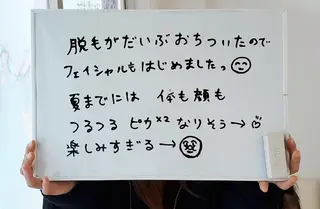 脱もがだいぶおちついたので
フェイシャルもはじめましたっ
夏までには 体も顔も
つるつる ピカ×2 なりそう→
楽しみすぎる→